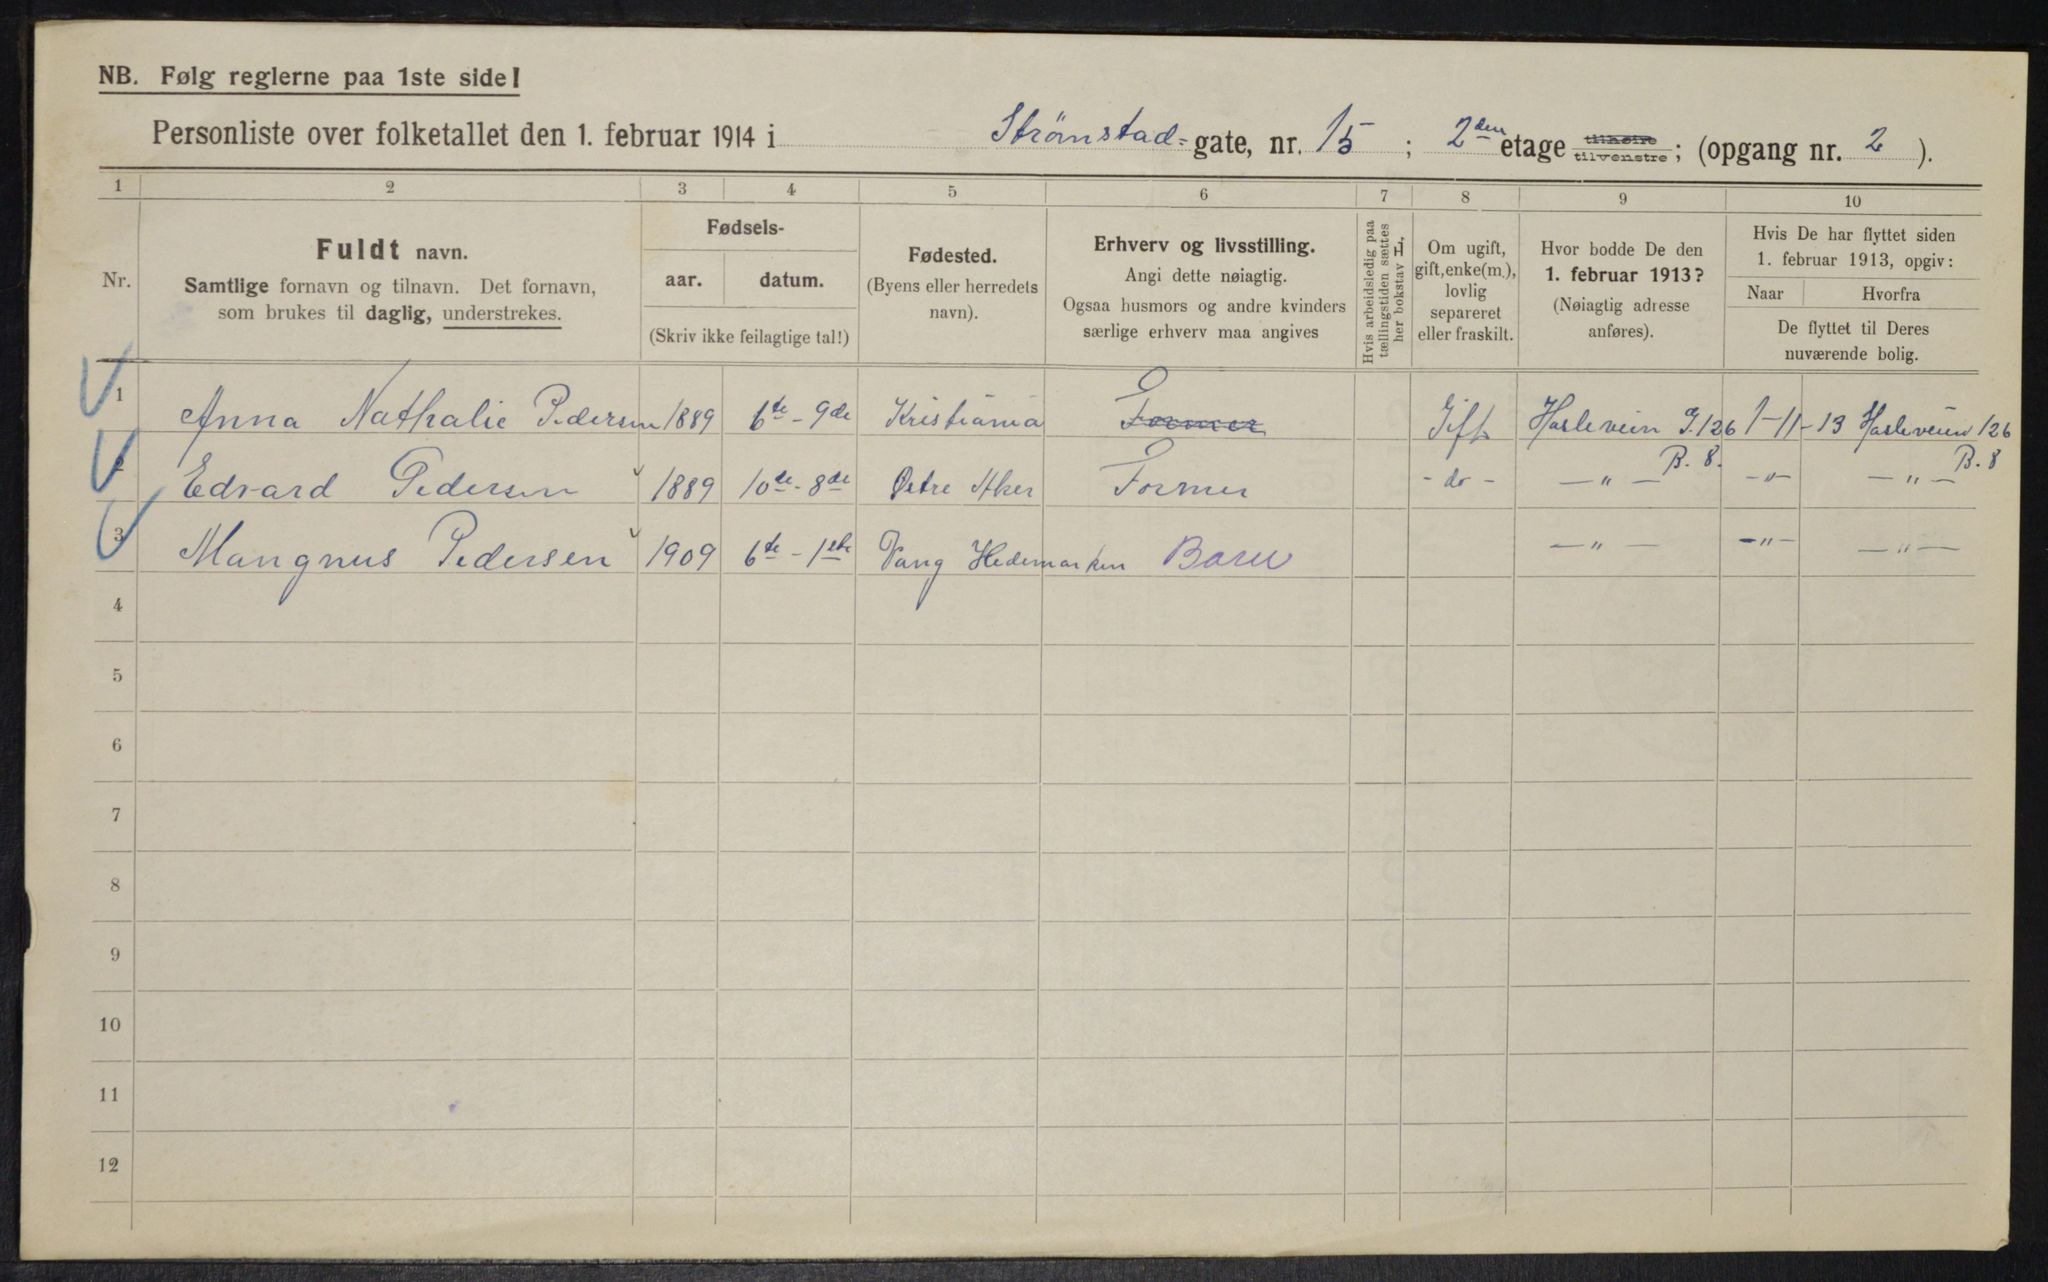 NB. Følg reglerne paa 1ste side!
Personliste over folketallet den 1. februar 1914 i Strømstad= gate, nr. 15 ; 2den etage tilhøire tilvenstre ; (opgang nr. 2 ).
1 2 3 4 5 6 7 8 9 10
Nr.
Fuldt navn.
Samtlige fornavn og tilnavn. Det fornavn,
som brukes til daglig, understrekes.
Fødsels-
aar. datum.
(Skriv ikke feilagtige tal!)
Fødested.
(Byens eller herredets
navn).
Erhverv og livsstilling.
Angi dette nøiagtig.
Ogsaa husmors og andre kvinders
særlige erhverv maa angives
Hvis arbeidsledig paa
tællingstiden sættes
her bokstav L.
Om ugift,
gift, enke(m.),
lovlig
separeret
eller fraskilt.
Hvor bodde De den
1. februar 1913?
(Nøiagtig adresse
anføres).
Hvis De har flyttet siden
1. februar 1913, opgiv:
Naar Hvorfra
De flyttet til Deres
nuværende bolig.
1 Anna Nathalie Pedersen 1889 6te - 9de Kristiania Former Gift Hasleveien G. 126 B. 8. 1-11-13 Hasleveien 126 B. 8
2 Edvard Pedersen 1889 10de - 8de Østre Aker Former - do - — " — -"- — " —
3 Mangnus Pedersen 1909 6te - 1ste Vang Hedemarken Barn — " — -"- — " —
4
5
6
7
8
9
10
11
12